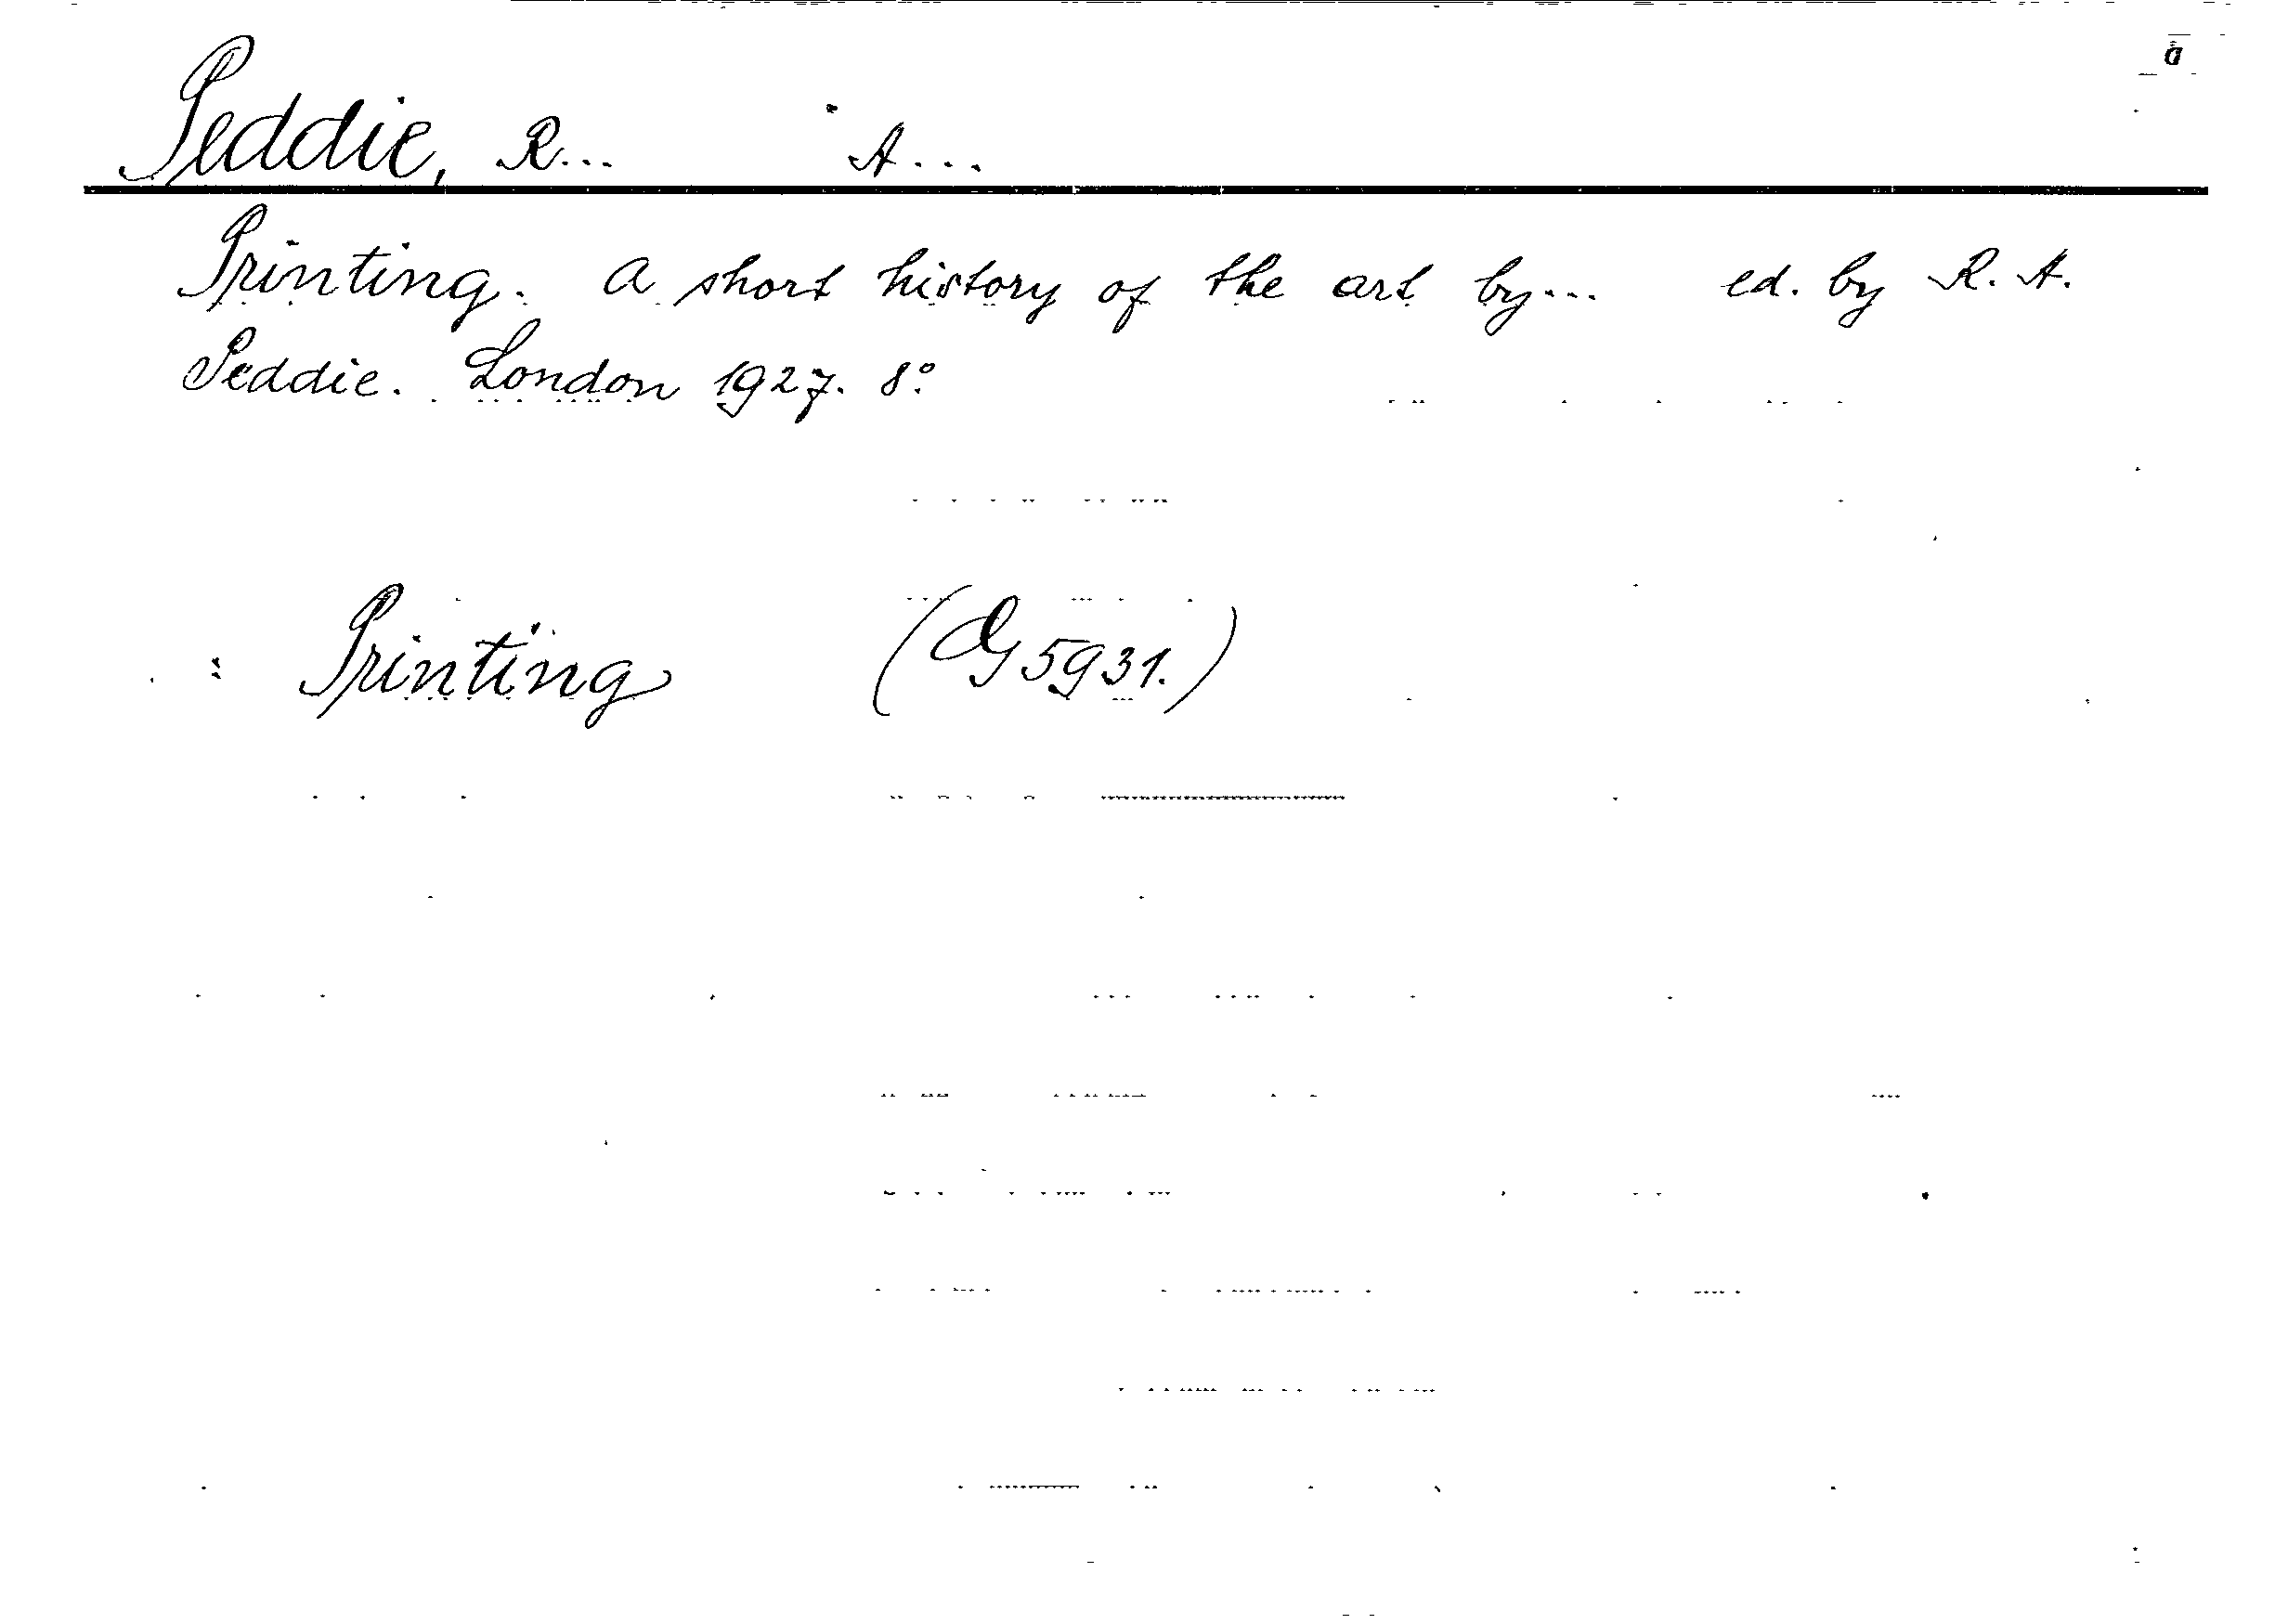 Peddie, R... A...
Printing. A short history of the art by... ed. by R. A.
Peddie. London 1927. 8°.
: Printing